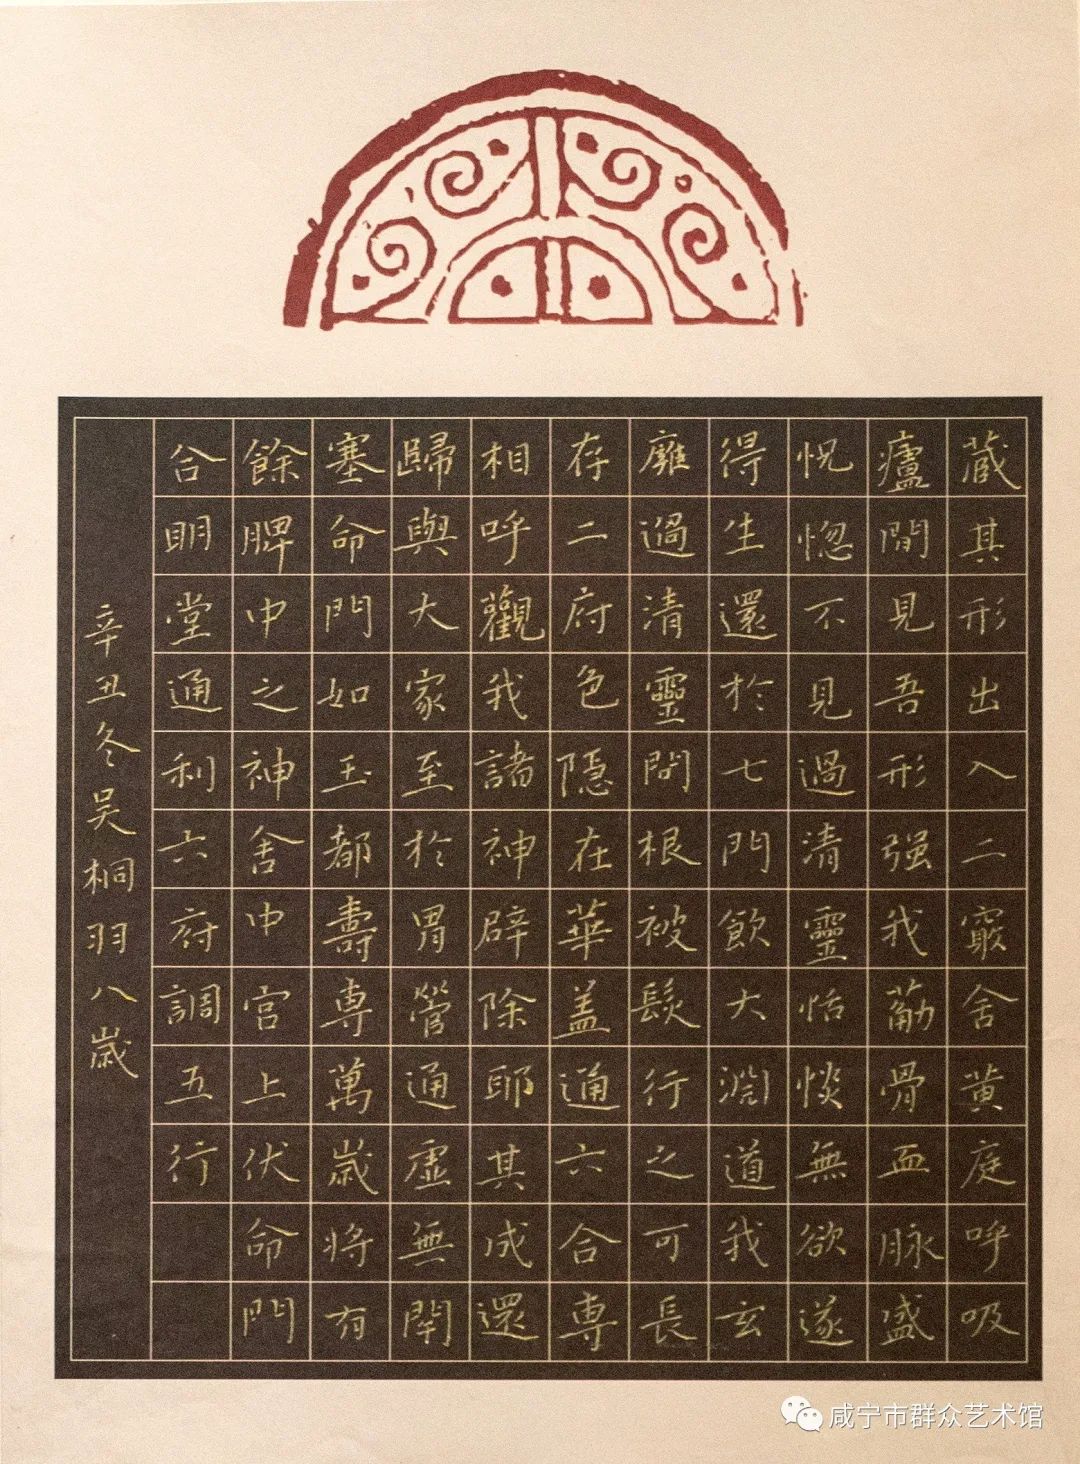 藏其形出入二竅舍黃庭呼吸
廬間見吾形强我筋骨血脉盛
怳惚不見過清靈恬惔無欲遂
得生還於七門飲大淵道我玄
廱過清靈問根被髮行之可長
存二府色隱在華盖通六合專
相呼觀我諸神辟除耶其成還
歸與大家至於胃管通虛無閉
塞命門如玉都壽專萬歲將有
餘脾中之神舍中宮上伏命門
合明堂通利六府調五行
辛丑冬吴桐羽八歲
咸宁市群众艺术馆